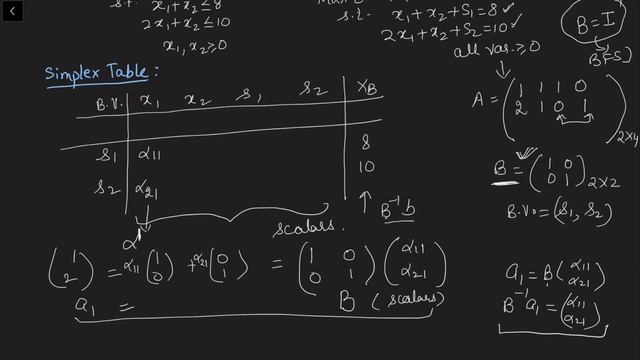 s.t. x₁+x₂≤8
2x₁+x₂≤10
x₁, x₂≥0
s.t. x₁+x₂+S₁=8 ✓
2x₁+x₂+S₂=10 ✓
all var. ≥0
B=I
BFS
Simplex Table:
B.V. x₁ x₂ s₁ s₂ XB
s₁ α11 8
s₂ α21 10
B⁻¹b
scalars.
A = (1 1 1 0
2 1 0 1)2x4
B = (1 0
0 1)2x2
B.V. = (s₁, s₂)
(1
2) = α11 (1
0) + α21 (0
1) = (1 0
0 1) (α11
α21)
a₁ = B (scalars)
a₁ = B (α11
α21)
B⁻¹a₁ = (α11
α21)